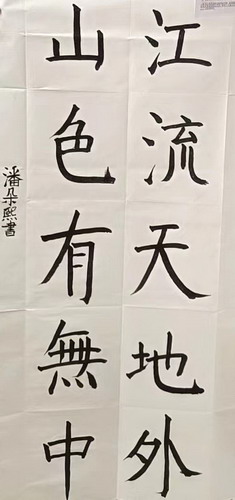 江流天地外
山色有無中
潘朵熙書